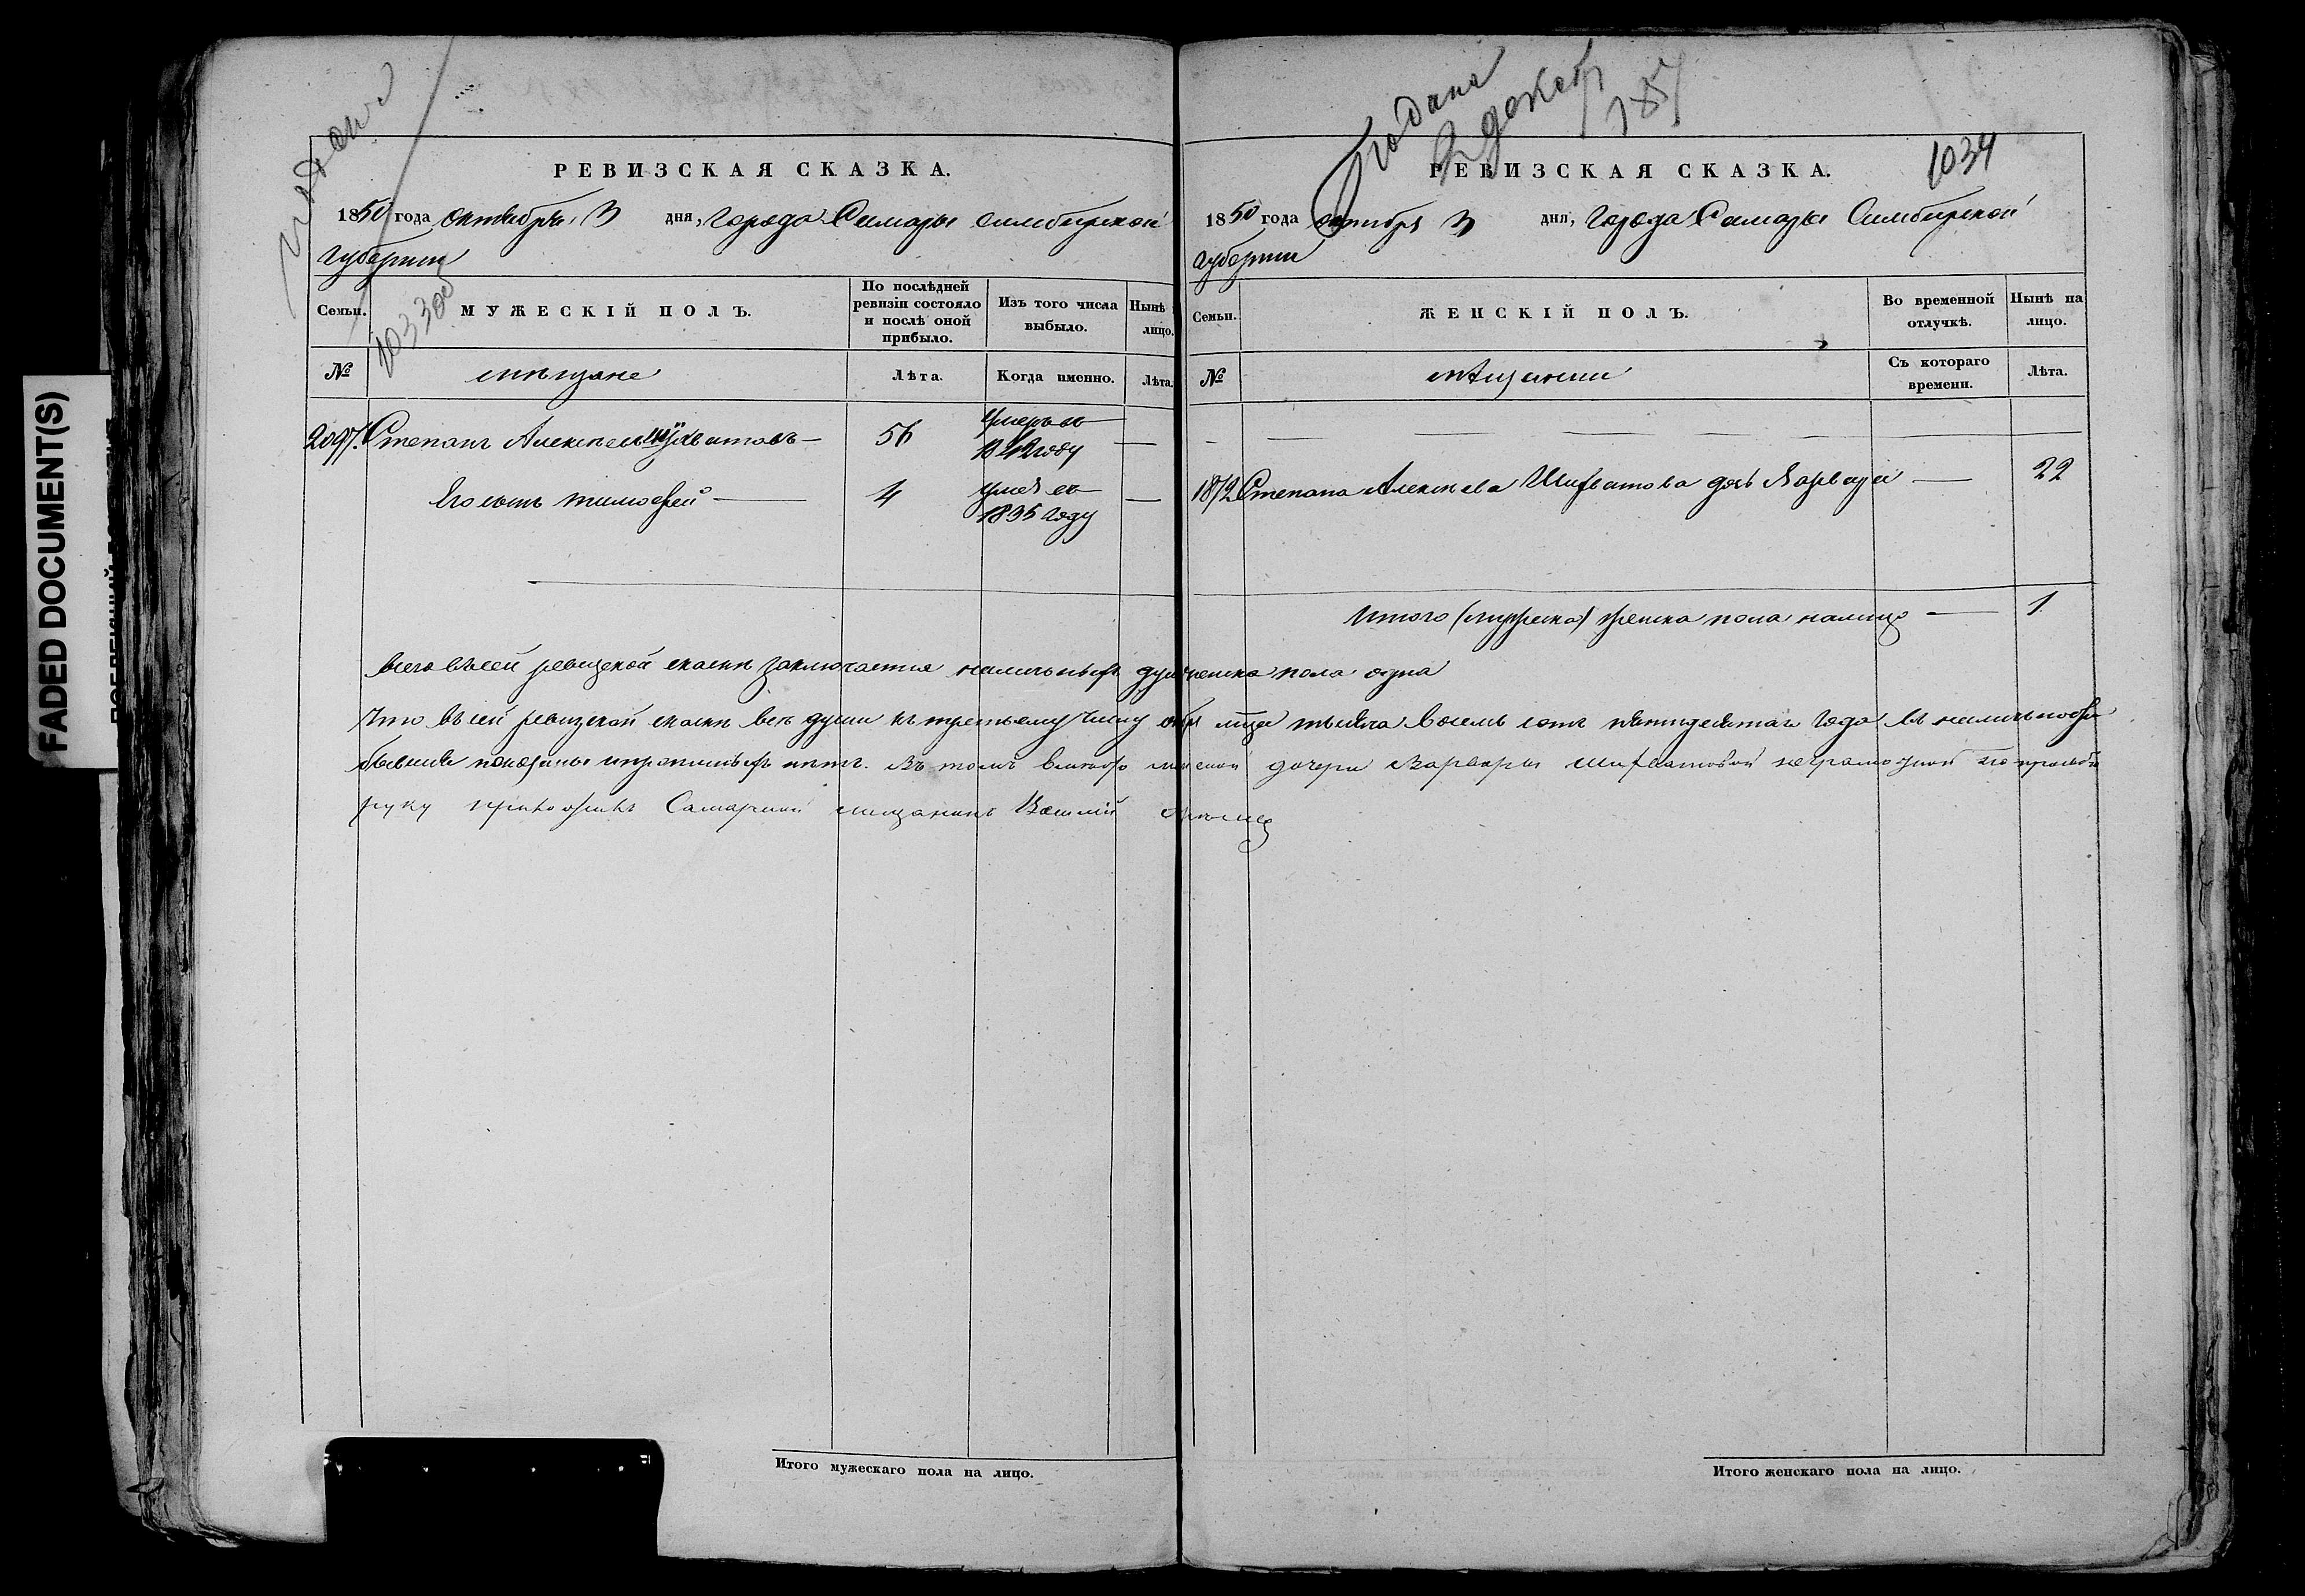 FADED DOCUMENT(S)
РЕВИЗСКАЯ СКАЗКА.
1850 года октября 3 дня, Города Самары Симбирской
губернии
Семьи.
МУЖЕСКІЙ ПОЛЪ.
По послѣдней
ревизіи состояло
и послѣ оной
прибыло.
Изъ того числа
выбыло.
Нынѣ
лицо.
№
мѣщане
Лѣта.
Когда именно.
Лѣта.
2097. Степанъ Алексѣевъ — 56 умеръ въ
1842 году —
Его сынъ Тимофей — 4 умеръ въ
1835 году —
Подана
2 декабр
185
1034
РЕВИЗСКАЯ СКАЗКА.
1850 года октября 3 дня, Города Самары Симбирской
губернии
Семьи.
ЖЕНСКІЙ ПОЛЪ.
Во временной
отлучкѣ.
Нынѣ на
лицо.
№
мѣщанки
Съ котораго
времени.
Лѣта.
1872 Степана Алексѣева Шихватова дочь Варвара — 22
Итого (мужеска) женска пола налицо — 1
Всего въ сей ревизской сказкѣ заключается наличныхъ душъ женска пола одна
Что въ сей ревизской сказкѣ всѣ души къ третьему числу октября мца тысяча восемь сотъ пятидесятаго года въ наличности
бывшия показаны и прописныхъ нѣтъ. Въ томъ вмѣсто дочери Варвары Шихватовой неграмотной по прозьбѣ
руку приложилъ Самарский мещанинъ Василий
Итого мужескаго пола на лицо.
Итого женскаго пола на лицо.